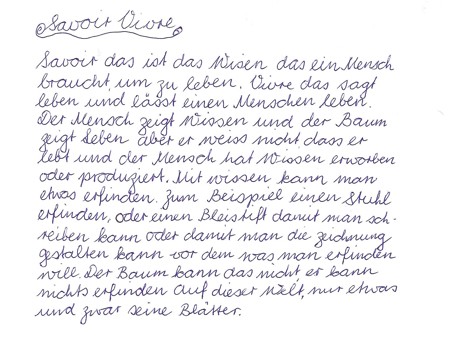 Savoir Vivre
Savoir das ist das Wisen das ein Mensch
braucht, um zu leben. Vivre das sagt
leben und lässt einen Menschen leben.
Der Mensch zeigt Wissen und der Baum
zeigt Leben aber er weiss nicht, dass er
lebt und der Mensch hat Wissen erworben
oder produziert. Mit wissen kann man
etwas erfinden. Zum Beispiel einen Stuhl
erfinden, oder einen Bleistift damit man sch-
reiben kann oder damit man die zeichnung
gestalten kann vor dem was man erfinden
will. Der Baum kann das nicht er kann
nichts erfinden auf dieser Welt, nur etwas
und zwar seine Blätter.